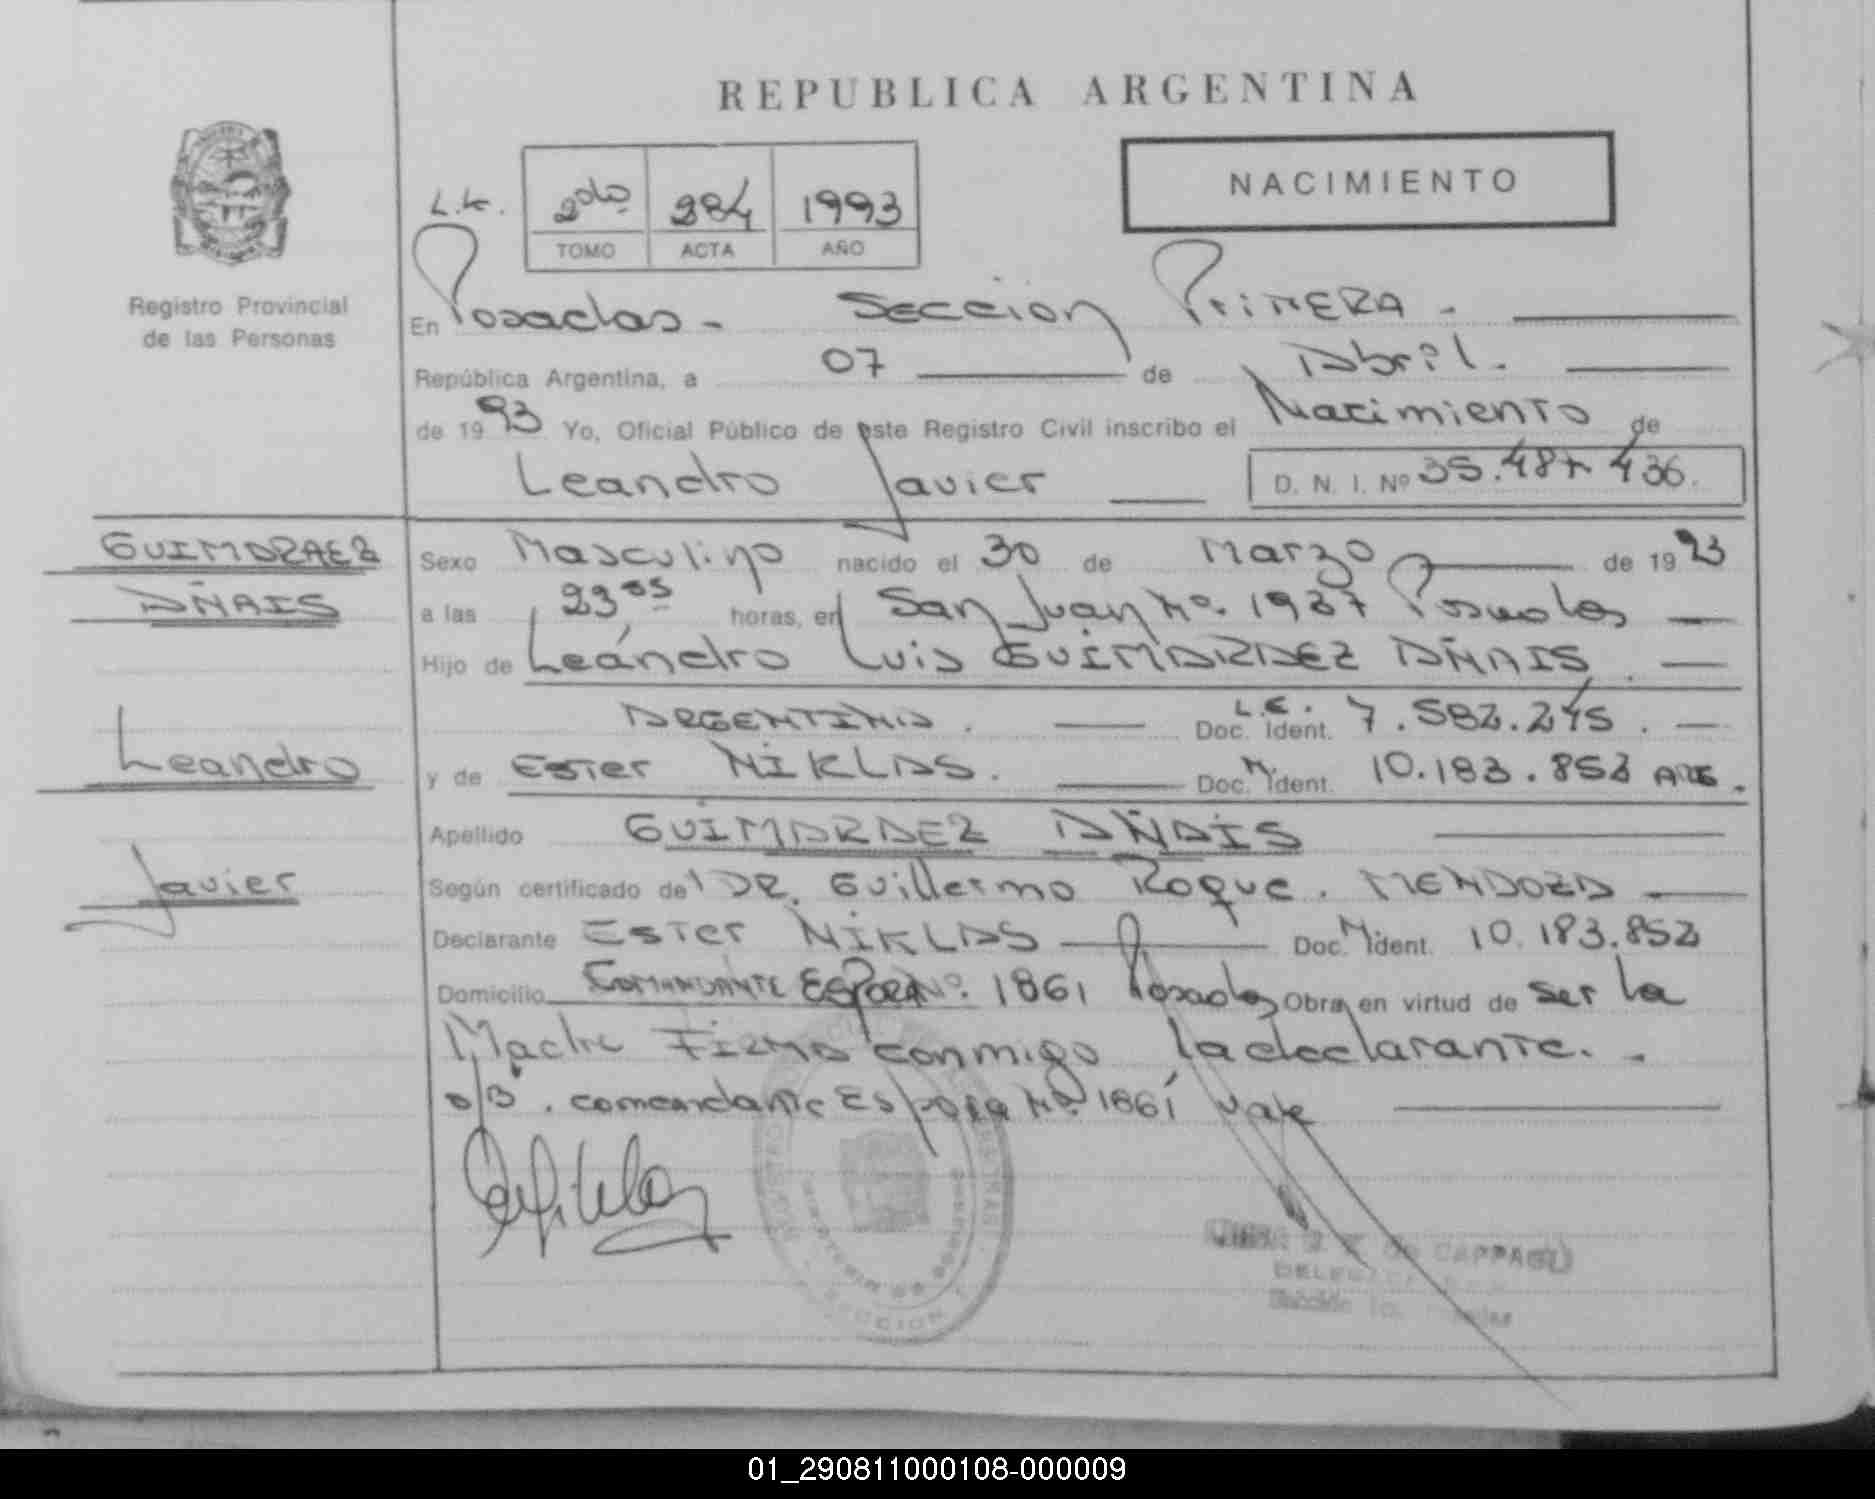 REPUBLICA ARGENTINA
NACIMIENTO
2do 284 1993
TOMO ACTA AÑO
Registro Provincial
de las Personas
En Posadas - Seccion PriMERA -
República Argentina, a 07 de Abril.
de 1993 Yo, Oficial Público de este Registro Civil inscribo el Nacimiento de
Leandro Javier D. N. I. Nº 35.487 436.
GUIMARAEZ
AÑAIS
Leandro
Javier
Sexo Masculino nacido el 30 de Marzo de 1993
a las 23 05 horas, en San Juan Nº. 1937 Posadas
Hijo de Leandro Luis GUIMARAEZ AÑAIS.
ARGENTINO. L.E. Doc. Ident. 7.582.245.
y de Ester NIKLAS. Doc. Ident. 10.183.852 ARG.
Apellido GUIMARAEZ AÑAIS
Según certificado del DR. Guillermo Roque. MENDOZA
Declarante Ester NIKLAS Doc. Ident. 10.183.852
Domicilio COMANDANTE ESPORA Nº. 1861 Posadas Obra en virtud de ser la
Madre FIRMA conmigo la declarante. -
s/B. comandante Espora Nº 1861 vale
CAPPAGLI
SECCION
01_290811000108-000009